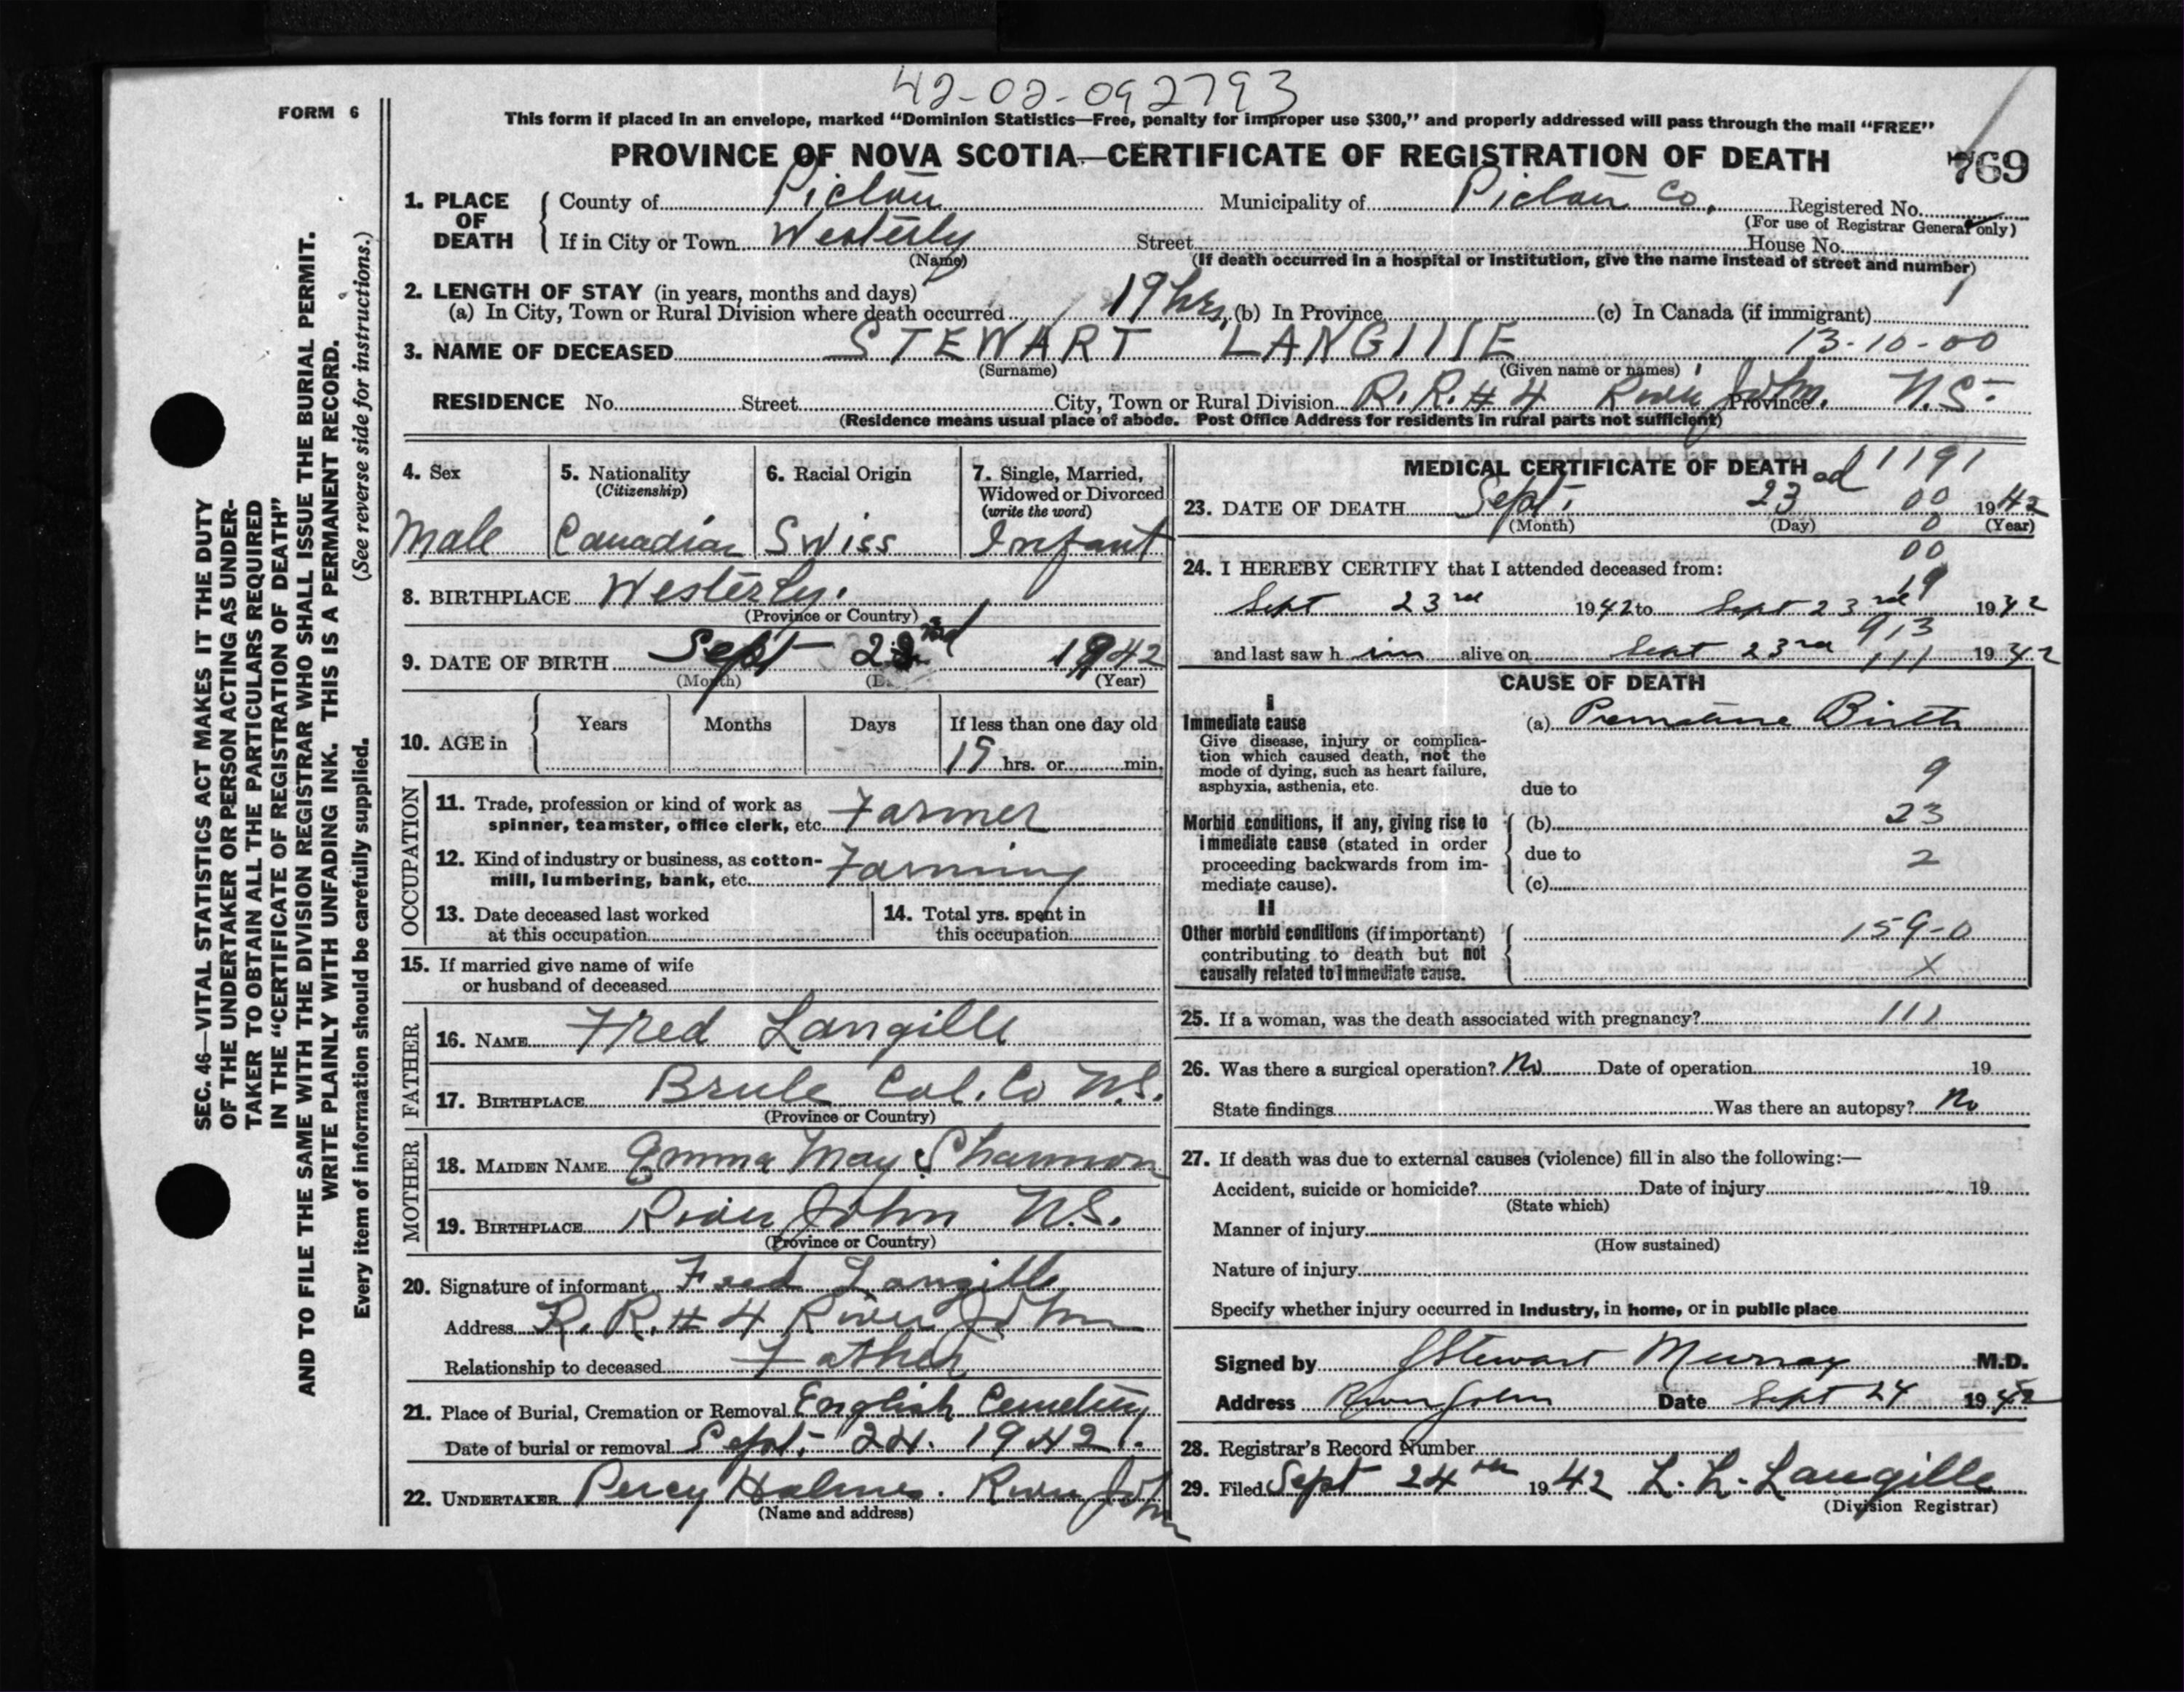 42-02-092793
FORM 6
This form if placed in an envelope, marked “Dominion Statistics—Free, penalty for improper use $300,” and properly addressed will pass through the mail “FREE”
PROVINCE OF NOVA SCOTIA—CERTIFICATE OF REGISTRATION OF DEATH 769
SEC. 46—VITAL STATISTICS ACT MAKES IT THE DUTY
OF THE UNDERTAKER OR PERSON ACTING AS UNDER-
TAKER TO OBTAIN ALL THE PARTICULARS REQUIRED
IN THE “CERTIFICATE OF REGISTRATION OF DEATH”
AND TO FILE THE SAME WITH THE DIVISION REGISTRAR WHO SHALL ISSUE THE BURIAL PERMIT.
WRITE PLAINLY WITH UNFADING INK. THIS IS A PERMANENT RECORD.
Every item of information should be carefully supplied. (See reverse side for instructions.)
1. PLACE OF DEATH County of Pictou Municipality of Pictou Co. Registered No.
(For use of Registrar General only)
If in City or Town Westerly Street House No.
(Name) (If death occurred in a hospital or institution, give the name instead of street and number)
2. LENGTH OF STAY (in years, months and days)
(a) In City, Town or Rural Division where death occurred 19 hrs. (b) In Province (c) In Canada (if immigrant)
3. NAME OF DECEASED STEWART LANGILLE 13-10-00
(Surname) (Given name or names)
RESIDENCE No. Street City, Town or Rural Division R.R. # 4 River John. Province N.S.
(Residence means usual place of abode. Post Office Address for residents in rural parts not sufficient)
4. Sex
Male
5. Nationality
(Citizenship)
Canadian
6. Racial Origin
Swiss
7. Single, Married,
Widowed or Divorced
(write the word)
Infant
8. BIRTHPLACE Westerly.
(Province or Country)
9. DATE OF BIRTH Sept 1942
(Month) (Year)
10. AGE in Years Months Days If less than one day old
19 hrs. or min.
OCCUPATION
11. Trade, profession or kind of work as
spinner, teamster, office clerk, etc. Farmer
12. Kind of industry or business, as cotton-
mill, lumbering, bank, etc. Farming
13. Date deceased last worked
at this occupation
14. Total yrs. spent in
this occupation
15. If married give name of wife
or husband of deceased
FATHER
16. NAME Fred Langille
17. BIRTHPLACE Brule Col. Co N.S.
(Province or Country)
MOTHER
18. MAIDEN NAME Emma May Shannon
19. BIRTHPLACE River John N.S.
(Province or Country)
20. Signature of informant Fred Langille
Address R.R. # 4 River John
Relationship to deceased Father
21. Place of Burial, Cremation or Removal English Cemetery
Date of burial or removal Sept. 24. 1942.
22. UNDERTAKER Percy Holmes. River John
(Name and address)
MEDICAL CERTIFICATE OF DEATH 1191
23. DATE OF DEATH Sept. 23rd 00 1942
(Month) (Day) 0 (Year)
00
24. I HEREBY CERTIFY that I attended deceased from:
19
Sept 23rd 1942 to Sept 23rd 1942
913
and last saw him alive on Sept 23rd 111 1942
CAUSE OF DEATH
I
Immediate cause (a) Premature Birth
Give disease, injury or complica-
tion which caused death, not the
mode of dying, such as heart failure,
asphyxia, asthenia, etc.
9
due to
23
Morbid conditions, if any, giving rise to
immediate cause (stated in order
proceeding backwards from im-
mediate cause).
(b)
due to 2
(c)
II
Other morbid conditions (if important)
contributing to death but not
causally related to immediate cause.
159-0
X
25. If a woman, was the death associated with pregnancy? 111
26. Was there a surgical operation? No Date of operation 19
State findings Was there an autopsy? No
27. If death was due to external causes (violence) fill in also the following:—
Accident, suicide or homicide? Date of injury 19
(State which)
Manner of injury
(How sustained)
Nature of injury
Specify whether injury occurred in Industry, in home, or in public place
Signed by J Stewart Murray M.D.
Address River John Date Sept 24 1942
28. Registrar’s Record Number
29. Filed Sept 24th 1942 L. L. Langille
(Division Registrar)